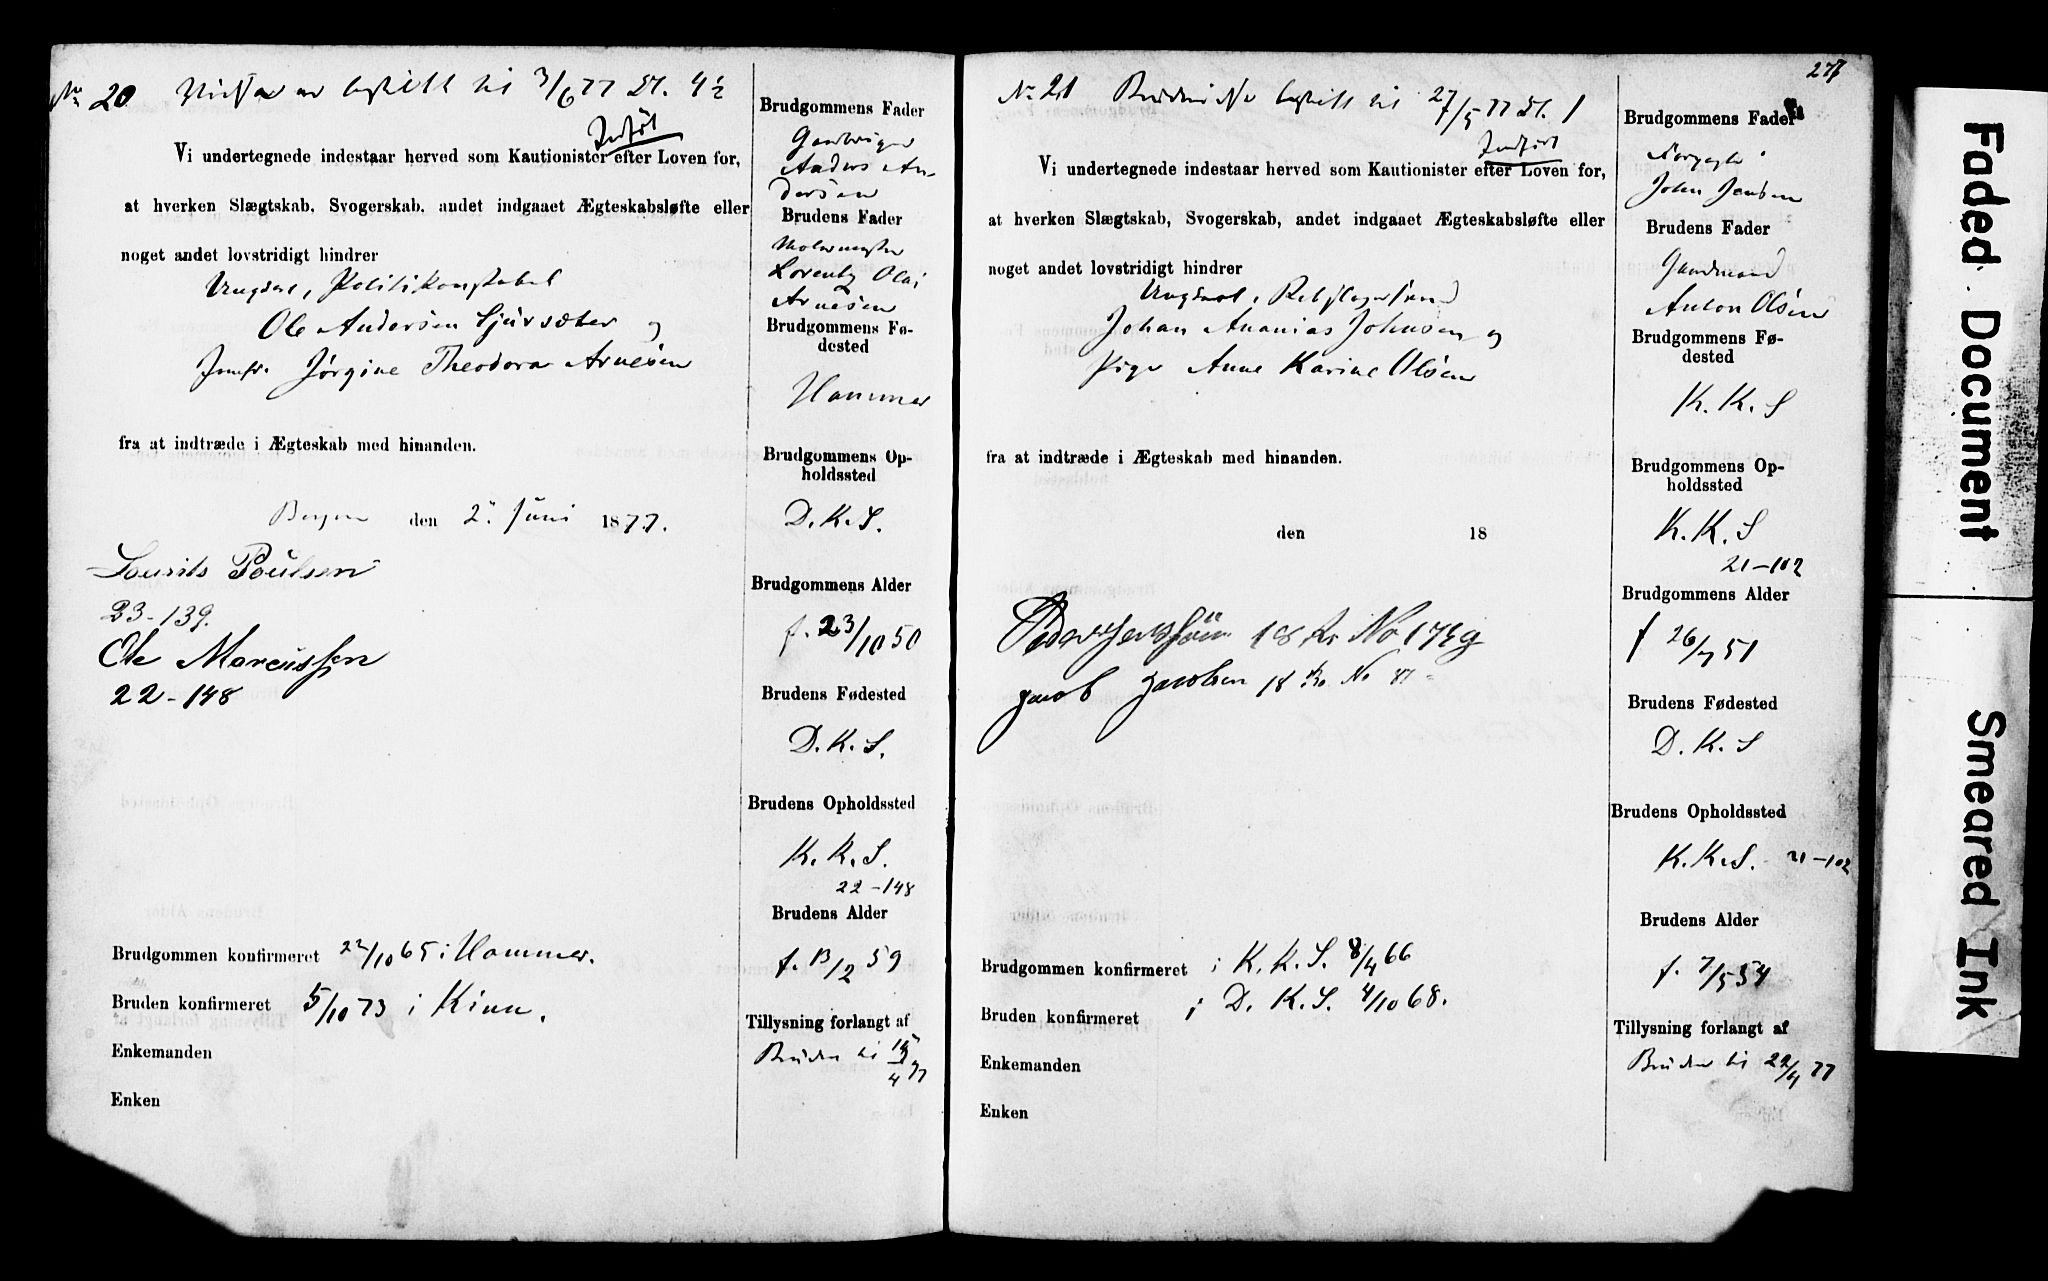 No 20 Vielsen er bestilt til 3/6 77 Kl. 4½
Indført
Vi undertegnede indestaar herved som Kautionister efter Loven for,
at hverken Slægtskab, Svogerskab, andet indgaaet Ægteskabsløfte eller
noget andet lovstridigt hindrer
Ungkarl, Politikonstabel
Ole Andersen Sjursæter og
Jomfr. Jørgine Theodora Arnesen
fra at indtræde i Ægteskab med hinanden.
Bergen den 2. Juni 1877.
Lourits Poulsen
23-139.
Ole Marcussen
22-148
Brudgommen konfirmeret 22/10 65 i Hammer.
Bruden konfirmeret 5/10 73 i Kinn.
Enkemanden
Enken
Brudgommens Fader
Gaardbruger
Anders An-
dersen
Brudens Fader
Lorentz Olai
Arnesen
Brudgommens Fø-
dested
Hammer
Brudgommens Op-
holdssted
D.K.S.
Brudgommens Alder
f. 23/10 50
Brudens Fødested
D.K.S.
Brudens Opholdssted
K.K.S.
22-148
Brudens Alder
f. 13/2 59
Tillysning forlangt af
Bruden til 15/4 77
277
No 21 bestilt til 27/5 77 Kl. 1
Indført
Vi undertegnede indestaar herved som Kautionister efter Loven for,
at hverken Slægtskab, Svogerskab, andet indgaaet Ægteskabsløfte eller
noget andet lovstridigt hindrer
Ungkarl, Rebslagersvend
Johan Ananias Johnsen og
Pige Anne Karine Olsen
fra at indtræde i Ægteskab med hinanden.
den 18
18 Kr No 179g
Jacob Jacobsen 18 Kr No
Brudgommen konfirmeret i K.K.S. 8/4 66
Bruden konfirmeret i D.K.S. 4/10 68.
Enkemanden
Enken
Brudgommens Fader
John
Brudens Fader
Gaardmand
Anton Olsen
Brudgommens Fø-
dested
K.K.S
Brudgommens Op-
holdssted
K.K.S
21-102
Brudgommens Alder
f 26/7 51
Brudens Fødested
D.K.S
Brudens Opholdssted
K.K.S. 21-102
Brudens Alder
f. 7/5 54
Tillysning forlangt af
Bruden til 22/4 77
Faded Document
Smeared Ink